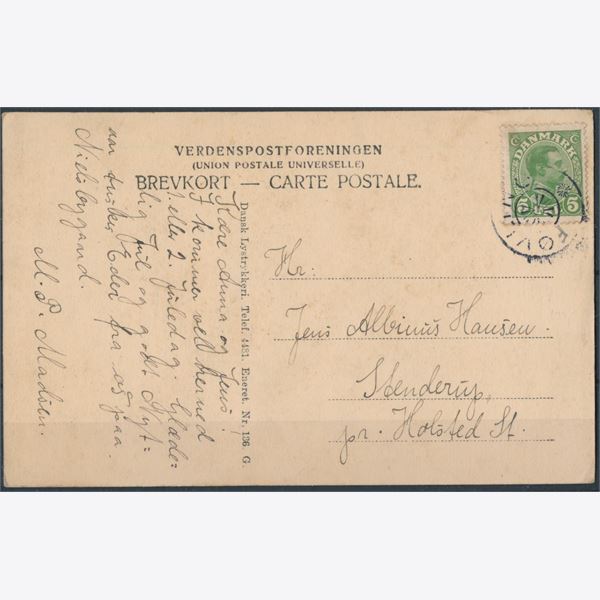 VERDENSPOSTFORENINGEN
(UNION POSTALE UNIVERSELLE)
BREVKORT — CARTE POSTALE.
DANMARK
5 5
Hr:
Jens Albinus Hansen.
Stenderup,
pr. Holsted St.
Dansk Lystrykkeri. Telef. 4481. Eneret. Nr. 136 G.
Kære Anna og Jens!
I kommer vel herned
1. eller 2. Juledag. Glæde=
lig Jul og godt Nyt=
aar ønskes Eder fra os paa
Nielsbygaard.
M. P. Madsen.